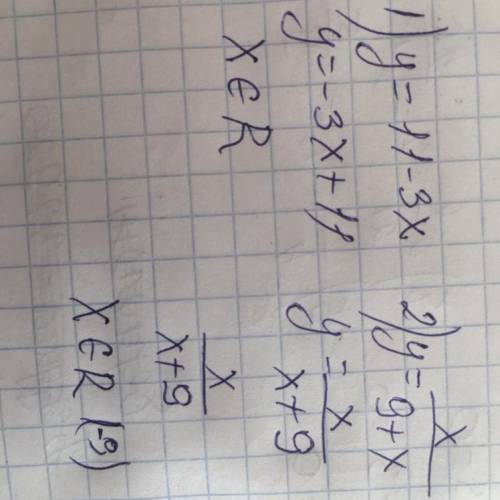 1) y = 11 - 3x
y = -3x + 11
x ∈ R
2) y = x/(9+x)
y = x/(x+9)
x/(x+9)
x ∈ R \(-9)